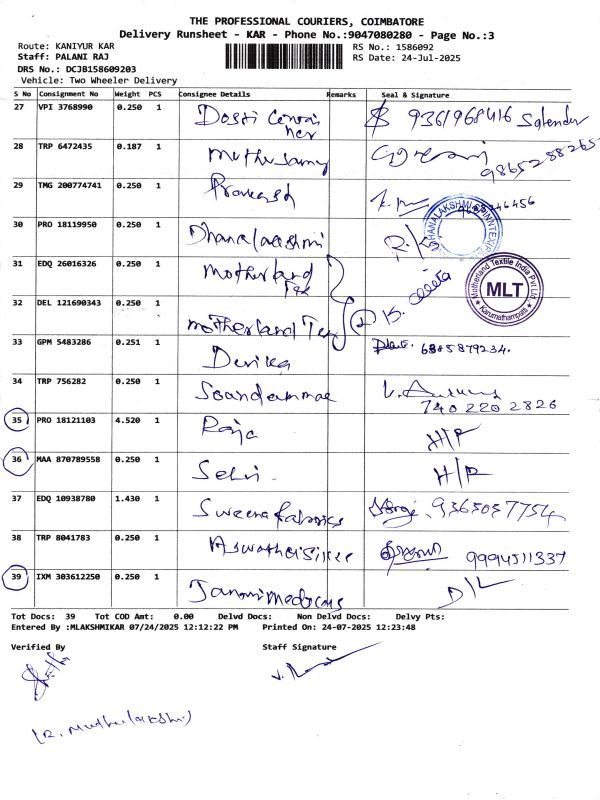 THE PROFESSIONAL COURIERS, COIMBATORE
Delivery Runsheet - KAR - Phone No.:9047080280 - Page No.:3
Route: KANIYUR KAR RS No.: 1586092
Staff: PALANI RAJ RS Date: 24-Jul-2025
DRS No.: DCJB158609203
Vehicle: Two Wheeler Delivery
S No Consignment No Weight PCS Consignee Details Remarks Seal & Signature
27 VPI 3768990 0.250 1 Dosti 9361968416 Satender
28 TRP 6472435 0.187 1 Muthusamy
29 TMG 200774741 0.250 1 Prakash
30 PRO 18119950 0.250 1 Dhanalakshmi R.K
DHANALAKSHMI
31 EDQ 26016326 0.250 1 Motherland Tex
32 DEL 121690343 0.250 1 Motherland Tex
Motherland Textile India Pvt Ltd.
MLT
Karumathampatti
33 GPM 5483286 0.251 1 Devika 6385879234.
34 TRP 756282 0.250 1 Soundammae 740 220 2826
35 PRO 18121103 4.520 1 Raja H/P
36 MAA 870789558 0.250 1 Selvi H/P
37 EDQ 10938780 1.430 1 Sweena fabrics
38 TRP 8041783 0.250 1 9994511337
39 IXM 303612250 0.250 1 D/L
Tot Docs: 39 Tot COD Amt: 0.00 Delvd Docs: Non Delvd Docs: Delvy Pts:
Entered By :MLAKSHMIKAR 07/24/2025 12:12:22 PM Printed On: 24-07-2025 12:23:48
Verified By Staff Signature
(R. Muthulakshmi)